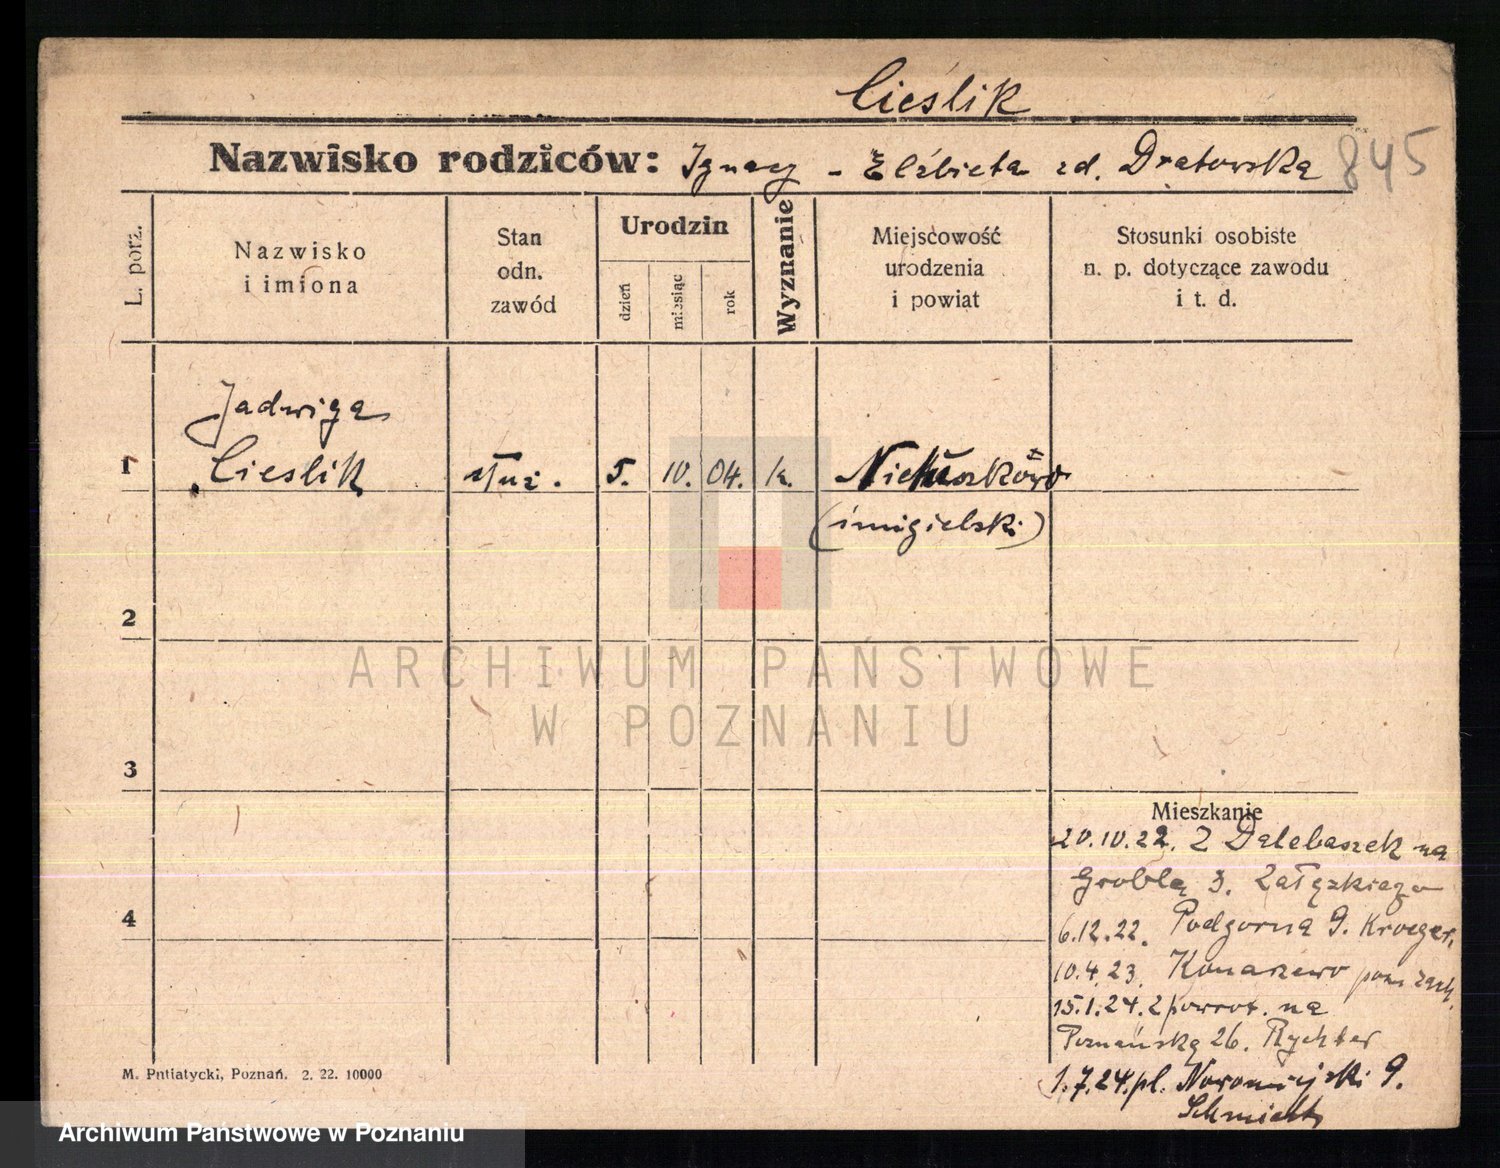 Cieślik
Nazwisko rodziców: Ignacy - Elżbieta zd. Dratowska 845
L. porz.
Nazwisko
i imiona
Stan
odn.
zawód
Urodzin
dzień
miesiąc
rok
Wyznanie
Miejscowość
urodzenia
i powiat
Stosunki osobiste
n. p. dotyczące zawodu
i t. d.
Jadwiga
1 Cieslik służ. 5. 10. 04. k.
(śmigielski)
2
ARCHIWUM PAŃSTWOWE
W POZNANIU
3
Mieszkanie
20.10.22. Z Dalebuszek na
Groblą 3. Załęskiego
4
6.12.22. Podgorna 9. Kroeger.
10.4.23. Konarzewo pow.
15.1.24. z powrot. na
Poznańską 26. Rychter
1.7.24. pl. Nowomiejski 9.
Schmiedt
M. Putiatycki, Poznań. 2. 22. 10000
Archiwum Państwowe w Poznaniu